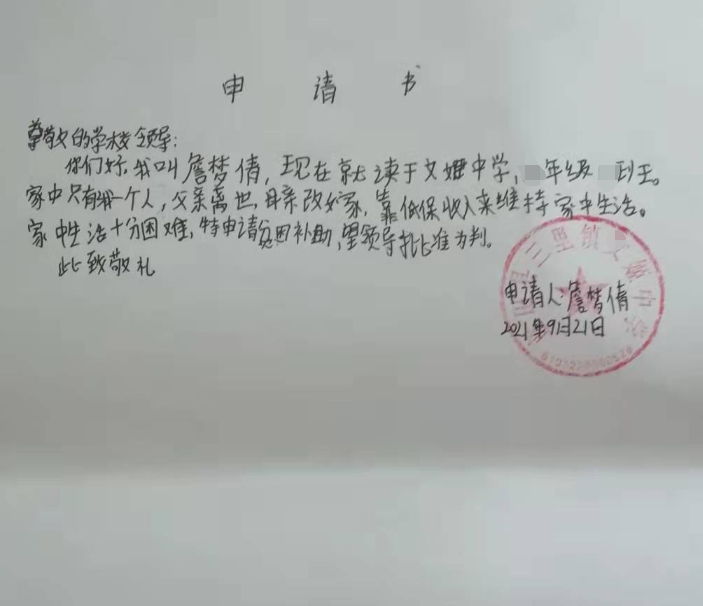 申请书
尊敬的学校领导:
你们好,我叫詹梦倩,现在就读于文姬中学,年级 班王。
家中只有我一个人,父亲离世,母亲改嫁,靠低保收入来维持家中生活。
家中生活十分困难,特申请贫困补助,望领导批准为盼。
此致敬礼
申请人:詹梦倩
2021年9月21日
三里镇文姬中学